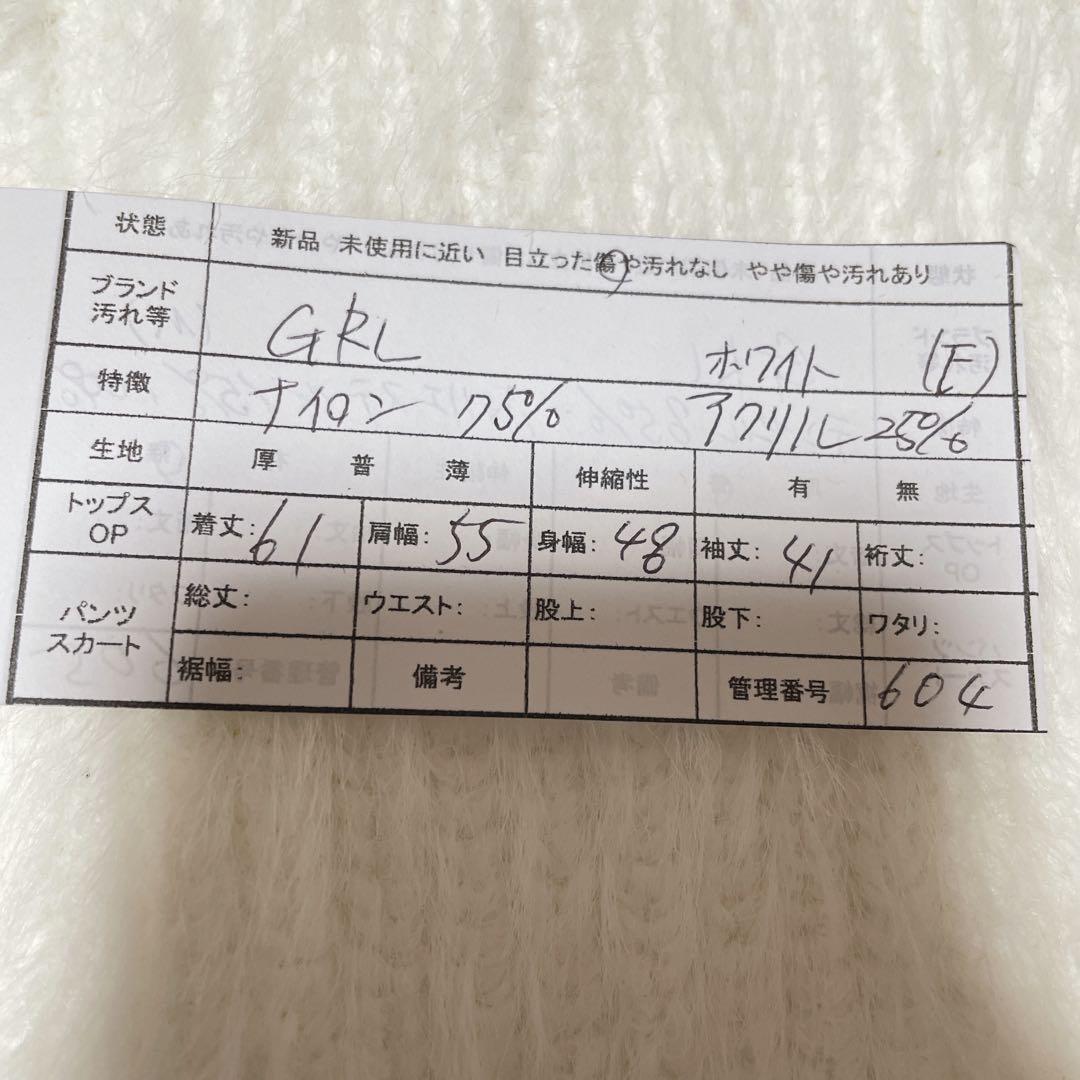 状態 新品 未使用に近い 目立った傷や汚れなし やや傷や汚れあり
ブランド
汚れ等 GRL ホワイト (F)
特徴 ナイロン 75% アクリル 25%
生地 厚 普 薄 伸縮性 有 無
トップス
OP 着丈: 61 肩幅: 55 身幅: 48 袖丈: 41 裄丈:
パンツ
スカート 総丈: ウエスト: 股上: 股下: ワタリ:
裾幅: 備考 管理番号 604